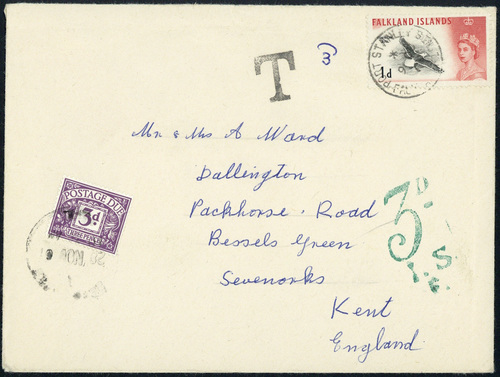 FALKLAND ISLANDS
½d
PORT STANLEY
T
3
Mr. & Mrs A Ward
Dallington
Packhorse Road
Bessels Green
Sevenoaks
Kent
England
POSTAGE DUE
3d
THREE PENCE
3D.
S